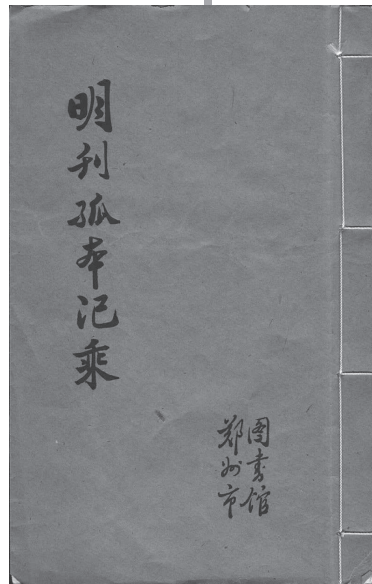 明刊孤本汜乘
鄭州市
图書馆